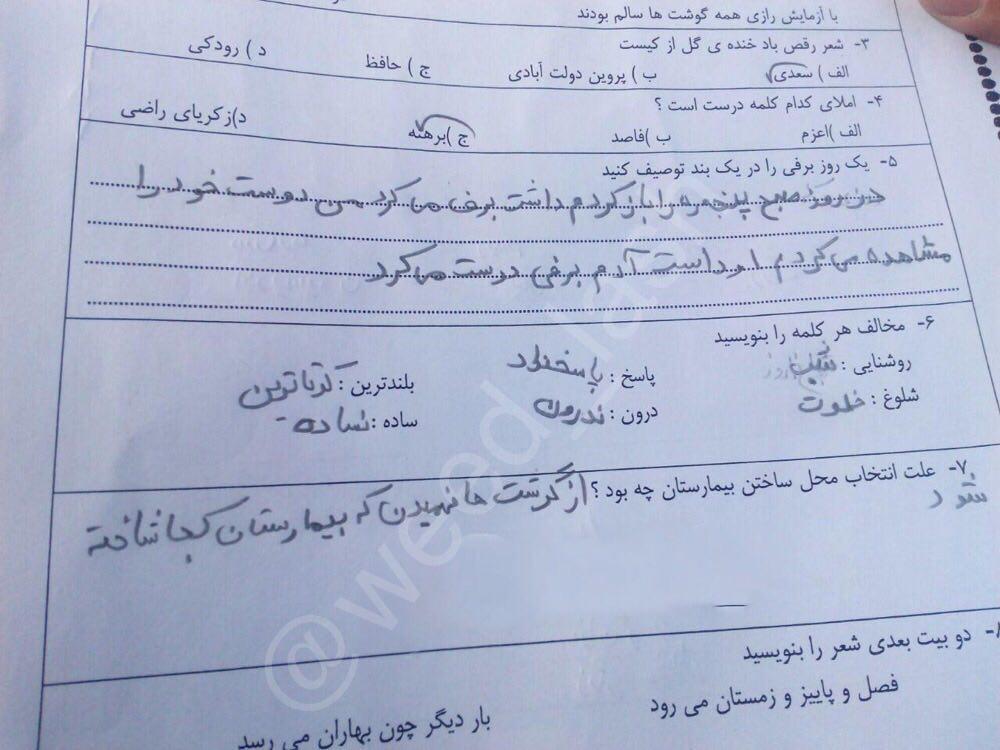 با آزمایش رازی همه گوشت ها سالم بودند
۳- شعر رقص باد خنده ی گل از کیست
الف ) سعدی ب ) پروین دولت آبادی ج ) حافظ د ) رودکی
۴- املای کدام کلمه درست است ؟
الف )اعزم ب )فاصد ج )برهنه د)زکریای راضی
۵- یک روز برفی را در یک بند توصیف کنید
در روز صبح پنجره را باز کردم داشت برف می کرد پس دوست خود را
مشاهده می کردم او داشت آدم برفی درست می کرد
۶- مخالف هر کلمه را بنویسید
روشنایی : شب پاسخ : پاسخ نداد بلندترین : کوتاترین
شلوغ : خلوت درون : ندرون ساده : نساده
۷- علت انتخاب محل ساختن بیمارستان چه بود ؟ از گوشت ها فهمیدن که بیمارستان کجا شاخته
شود
۸- دو بیت بعدی شعر را بنویسید
فصل و پاییز و زمستان می رود
بار دیگر چون بهاران می رسد
@weed_lash